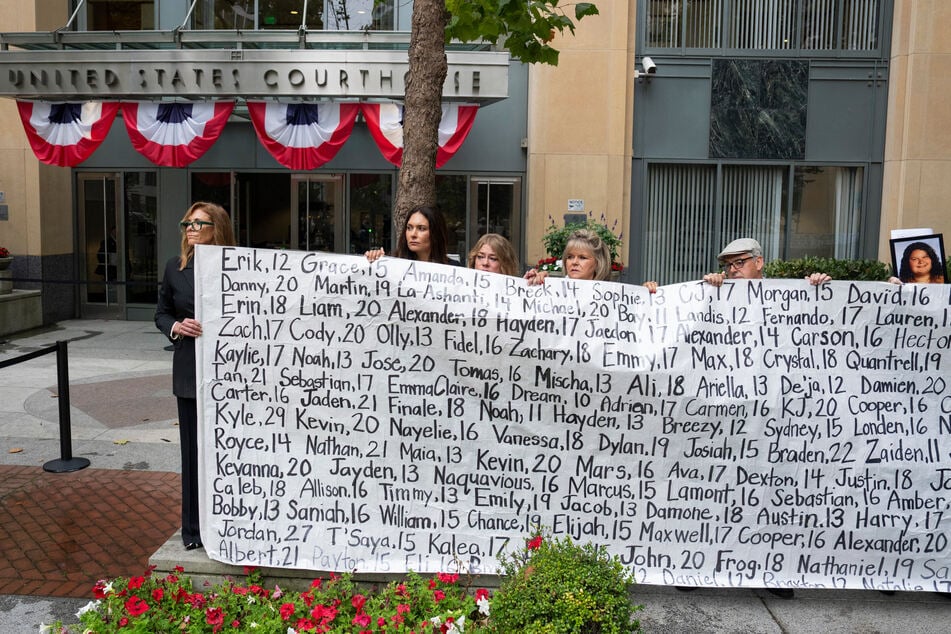 UNITED STATES COURTHOUSE
NOTICE
Erik, 12 Grace, 15 Amanda, 15 Breck, 14 Sophie, 13 CJ, 17 Morgan, 15 David, 16
Danny, 20 Martin, 19 La-Ashanti, 14 Michael, 20 Bay, 11 Landis, 12 Fernando, 17 Lauren, 17
Erin, 18 Liam, 20 Alexander, 18 Hayden, 17 Jaedon, 17 Alexander, 14 Carson, 16 Hector
Zach, 17 Cody, 20 Olly, 13 Fidel, 16 Zachary, 18 Emmy, 17 Max, 18 Crystal, 18 Quantrell, 19
Kaylie, 17 Noah, 13 Jose, 20 Tomas, 16 Mischa, 13 Ali, 18 Ariella, 13 Deja, 12 Damien, 20
Ian, 21 Sebastian, 17 EmmaClaire, 16 Dream, 10 Adrien, 17 Carmen, 16 KJ, 20 Cooper, 16
Carter, 16 Jaden, 21 Finale, 18 Noah, 11 Hayden, 13 Breezy, 12 Sydney, 15 Londen, 16 N
Kyle, 29 Kevin, 20 Nayelie, 16 Vanessa, 18 Dylan, 19 Josiah, 15 Braden, 22 Zaiden, 11
Royce, 14 Nathan, 21 Maia, 13 Kevin, 20 Mars, 16 Ava, 17 Dexton, 14 Justin, 18 Ja
Kevanna, 20 Jayden, 13 Naquavious, 16 Marcus, 15 Lamont, 16 Sebastian, 16 Amber,
Caleb, 18 Allison, 16 Timmy, 13 Emily, 19 Jacob, 13 Damone, 18 Austin, 13 Harry, 17
Bobby, 13 Saniah, 16 William, 15 Chance, 19 Elijah, 15 Maxwell, 17 Cooper, 16 Alexander, 20
Jordan, 27 T'Saya, 15 Kalea, 17 John, 20 Frog, 18 Nathaniel, 19 Sa
Albert, 21 Payton, 15 Eli, 16 Daniel, 12 Braxton, 12 Natalie, 17